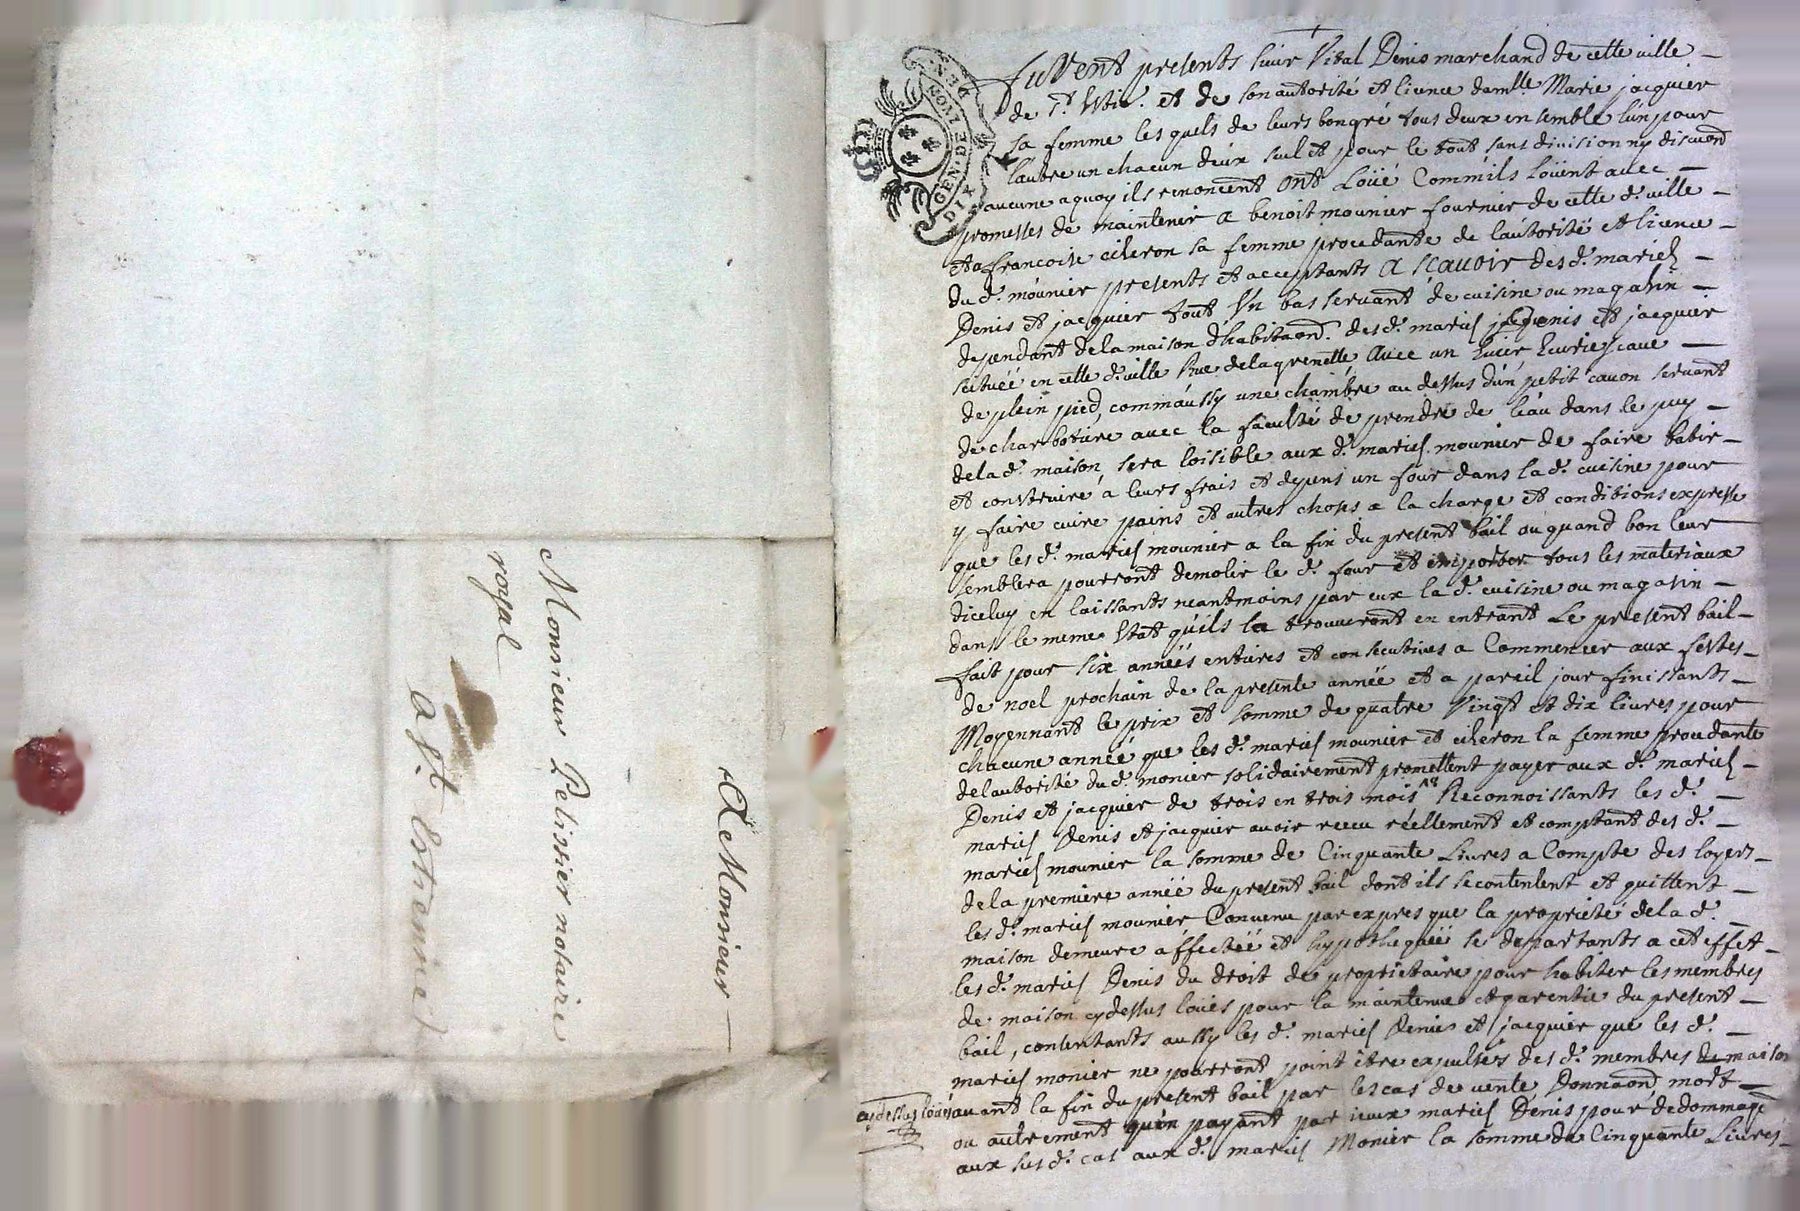 A Monsieur
Monsieur Pelissier notaire
royal
a St. Estienne
GEN. DE LYON.
DIX DEN.
Furent presents sieur Vital Denis marchand de cette ville
de St. Estie. et de son autorité et licence damlle. Marie jacquier
sa femme les quels de leurs bongré tous deux ensemble lun pour
lautre un chacun deux seul et pour le tout sans division ny discuon
aucune aquoy ils renoncent ont Loüé Commils Loüent avec
promesses de maintenir a benoit mounier fournier de cette d. ville
et a francoise cheron sa femme procedante de lautorité et licence
du d. mounier presents et acceptants a scavoir des d. mariés
Denis et jacquier tout Un bas servant de cuisine ou magasin
dependant de la maison d'habitaon. des d. mariés Denis et jacquier
scituéé en cette d. ville Rue de la grenette avec un Ecurie cave
de plein pied, comm'aussy une chambre au dessus d'un petit cavon servant
de charbotiere avec la faculté de prendre de l'éau dans le puy
dela d. maison, sera loisible aux d. mariés mounier de faire batir
et construire à leurs frais et depens un four dans la d. cuisine pour
y faire cuire pains et autres choses a la charge et conditions expresse
que les d. mariés mounier a la fin du present bail ou quand bon leur
semblera pourront demolir le d. four et emporter tous les materiaux
diceluy en laissants neantmoins par eux la d. cuisine ou magasin
dans le meme Etat qu'ils la trouveront en entrant Le present bail
fait pour six annéés entieres et consecutives a Commencer aux festes
de noel prochain de la presente année et a pareil jour finissants
Moyennant le prix et somme de quatre Vingt et dix livres pour
chacune année que les d. mariés mounier et cheron sa femme procedante
delautorité du d. monier solidairement promettent payer aux d. mariés
Denis et jacquier de trois en trois mois Reconnoissants les d.
mariés Denis et jacquier avoir receu réellement et comptant des d.
mariés mounier la somme de Cinquante Livres a Compte des loyers
dela premiere année du present bail dont ils se contentent et quittent
les d. mariés mounier Convenu par expres que la proprieté dela d.
maison demeure affectéé et hypothequéé se departants a cet effet
les d. mariés Denis du droit de proprietaire pour habiter les membres
de maison cy dessus loüés pour la maintenue et garentie du present
bail, consentants aussy les d. mariés Denis et jacquier que les d.
mariés monier ne pourront point être expulsés des d. membres de maison
cy dessus loüés avant la fin du present bail par les cas de vente Donnaon mort
ou autrement qu'en payant par iceux mariés Denis pour dedommagé
aux sus d. cas aux d. mariés Monier la somme de Cinquante Livres